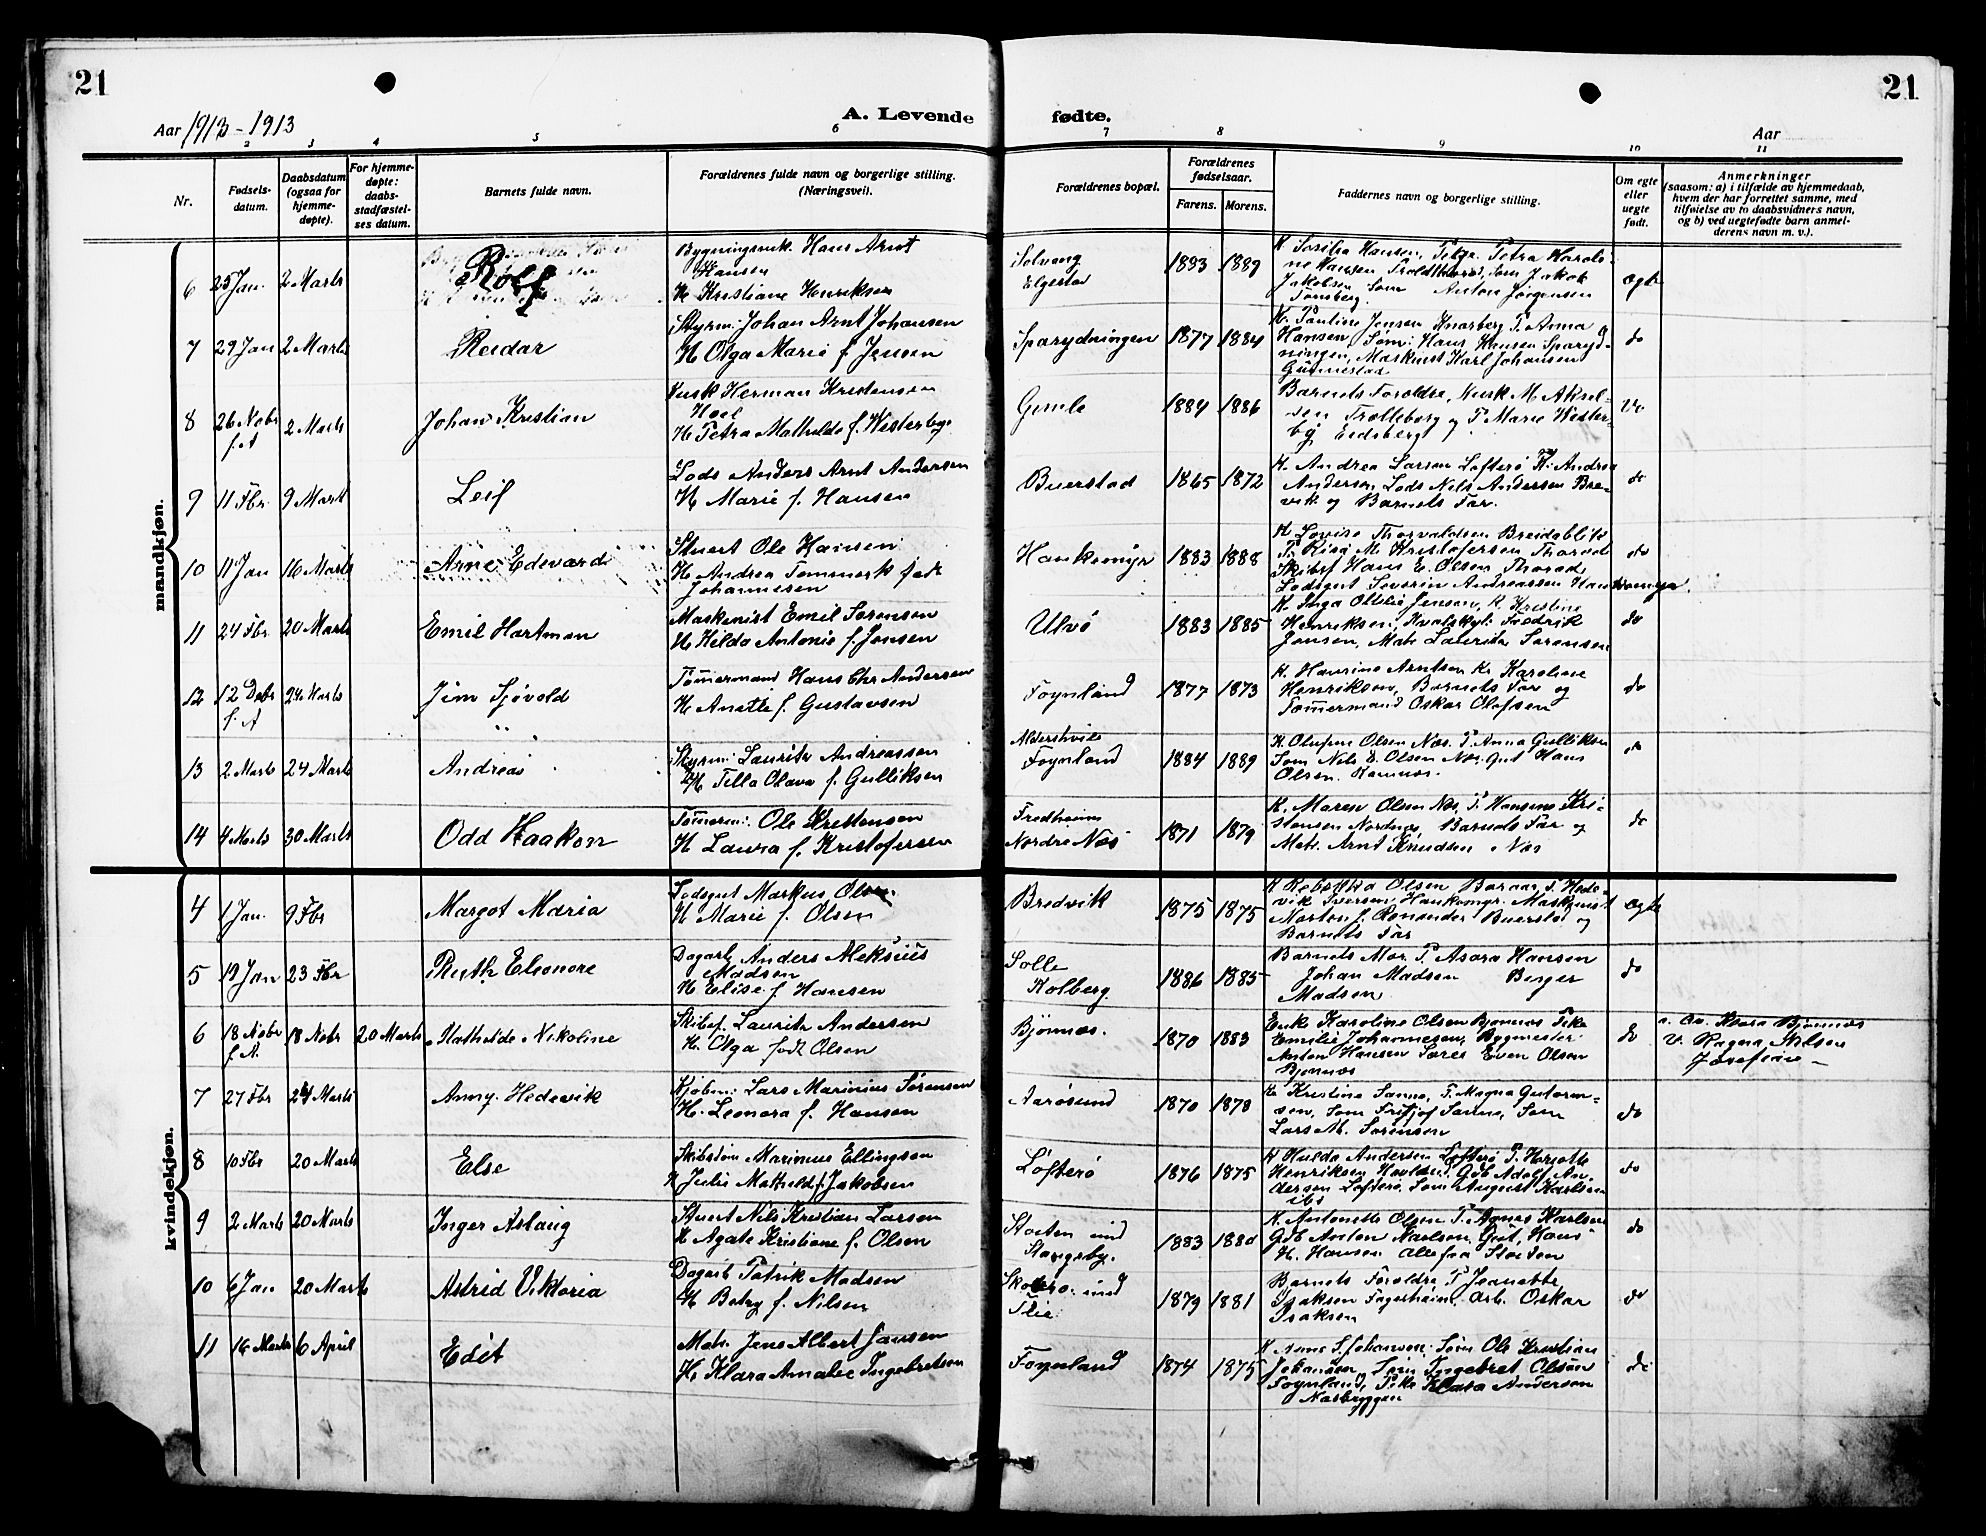 21
21
Aar 1913-1913
A. Levende fødte.
Aar
2 3 4 5 6 7 8 9 10 11
Nr.
Fødsels-
datum.
Daabsdatum
(ogsaa for
hjemme-
døpte).
For hjemme-
døpte:
daabs-
stadfæstel-
ses datum.
Barnets fulde navn.
Forældrenes fulde navn og borgerlige stilling.
(Næringsvei).
Forældrenes bopæl.
Forældrenes
fødselsaar.
Farens. Morens.
Faddernes navn og borgerlige stilling.
Om egte
eller
uegte
født.
Anmerkninger
(saasom: a) i tilfælde av hjemmedaab,
hvem der har forrettet samme, med
tilføielse av to daabsvidners navn,
og b) ved uegtefødte barn anmel-
derens navn m. v.).
mandkjøn.
6 25 Jan. 2 Marts Rolf
Hans Arnt
Hansen
H Kristiane Henriksen
Solvang
Elgestad
1883 1889
Petra Haroli-
ne Hansen Som Jakob
Jakobsen Som Anton Jørgensen
Tønsberg.
ægte
7 29 Jan 2 Marts Reidar
Styrm: Johan Arnt Johansen
H Olga Marie f Jensen
Sparydningen 1877 1884
K. Pauline Jensen Knarberg P. Anna
Hansen, Som: Hans Hansen Sparyd-
ningen, Maskinist Karl Johansen
Gunnestad
do
8 26 Nobr f.A 2 Marts Johan Kristian
Kusk Herman Kristensen
H Petra Mathilde f. Westerbye
Gimle 1884 1886
Barnets Forældre, Kusk M. Aksel-
sen Trolleborg og P Marie Wester-
by Eidsberg
do
9 11 Fbr 9 Mart Leif
Lods Anders Arnt Andersen
H Marie f. Hansen
Buerstad 1865 1872
K. Andrea Larsen Lofterø P. Andrea
Andersen, Lods Nils Andersen Bre-
vik og Barnets Far.
do
10 11 Jan 16 Marts Arne Edevard
Stuert Ole Hansen
H Andrea født
Johannesen
1883 1888
K Lovise Thorvaldsen Breidablik
Kristofersen Thorød
Hans E. Olsen Thorød
Lodsgut Severin Andreassen
do
11 24 Fbr 20 Marts Emil Hartman
Maskinist Emil Sørensen
H Hilda Antonie f Jansen
Ulvø 1883 1885
K. Inga Jensen, K. Kristine
Henriksen, Hvalskyt: Fredrik
Jansen, Mat: Lauritz Sørensen
do
12 12 Debr f.A 24 Marts Jim Sjøvold
Tømermand Hans Chr Andersen
H Anette f. Gustavsen
Føynland 1877 1873
K. Haurine Arntsen K. Karoline
Henriksen, Barnets Far og
Tømmermand Oskar Olafsen
do
13 2 Marts 24 Marts Andreas
Styrm: Lauritz Andreassen
H Tilla Olava f. Gulliksen
Aldershvile
Føynland
1884 1889
K. Olufine Olsen Næs. P. Anna Gulliksen
Som Nils E. Olsen Næs. Gut Hans
Olsen. Ramnæs.
do
14 4 Marts 30 Marts Odd Haakon
Tømerm: Ole Kristensen
H Laura f. Kristofersen
Fredheim
Nordre Næs
1871 1879
K. Maren Olsen Næs, P. Hansine Kri-
stensen Nordnæs, Barnets Far og
Matr. Arnt Knudsen Næs
do
kvindekjøn.
4 1 Jan. 9 Fbr Margot Maria
Lodsgut Markus Olsen
H Marie f. Olsen
Bredvik 1875 1875
K Rebekka Olsen P. Hede-
vik Iversen Maskinist
Morten f. Buerstad og
Barnets Far
ægte
5 19 Jan 23 Fbr Ruth Eleonore
Dagarb Anders Aleksius
Madsen
H Elise f. Hansen
Solle
Kolberg
1886 1885
Barnets Mor. P. Asora Hansen
Johan Madsen Berger
Madsen
do
6 18 Nobr f.A. 18 Nobr 20 Marts Mathilde Nikoline
Skibsf. Lauritz Andersen
H. Olga født Olsen
Bjønnæs. 1870 1883
Enke Karoline Olsen Bjønnæs Pike
Emilie Johannesen, Bygmester
Anton Hansen Even Olsen
Bjønnæs
do
Bjønnæs
Ragna
7 27 Fbr 24 Marts Anny Hedevik
Kjøbm: Lars Marinius Sørensen
H. Leonora f. Hansen
Aarøsund 1870 1878
K Kristine Sanne, P. Magna Gustavn-
sen, Som Fritjof Sanne, Som
Lars M. Sørensen
do
8 10 Fbr 20 Marts Else
Skibstøm Marinius Ellingsen
H Julie Mathilde f. Jakobsen
Løfterø 1876 1875
K Hulda Andersen Løfterø P.
Henriksen Adolf An-
dersen Løfterø, Som August Karlsen
ibd
do
9 2 Marts 20 Marts Inger Aslaug
Stuert Nils Kristian Larsen
H Agate Kristiane f. Olsen
Stoeten ind
Stangsby.
1883 1880
K. Antonette Olsen P. Agnes Karlsen
Anton Karlsen, Gut, Hans
H. Hansen alle fra Stoeten
do
10 6 Jan 20 Marts Astrid Viktoria
Dagarb Patrik Madsen
H Betzy f. Nilsen
1879 1881
Barnets Forældre P Jeanette
Isaksen Fagerheim, arb. Oskar
Isaksen
do
11 16 Marts 6 April Edit
Matr. Jens Albert Jansen
H. Klara Amalie Ingebretsen
Føynland 1874 1875
K Anne S. Johansen: Som Ole Kristian
Johansen Som Ingebret Olsen
Føynland, Pike Klara Andersen
Næsbryggen
do